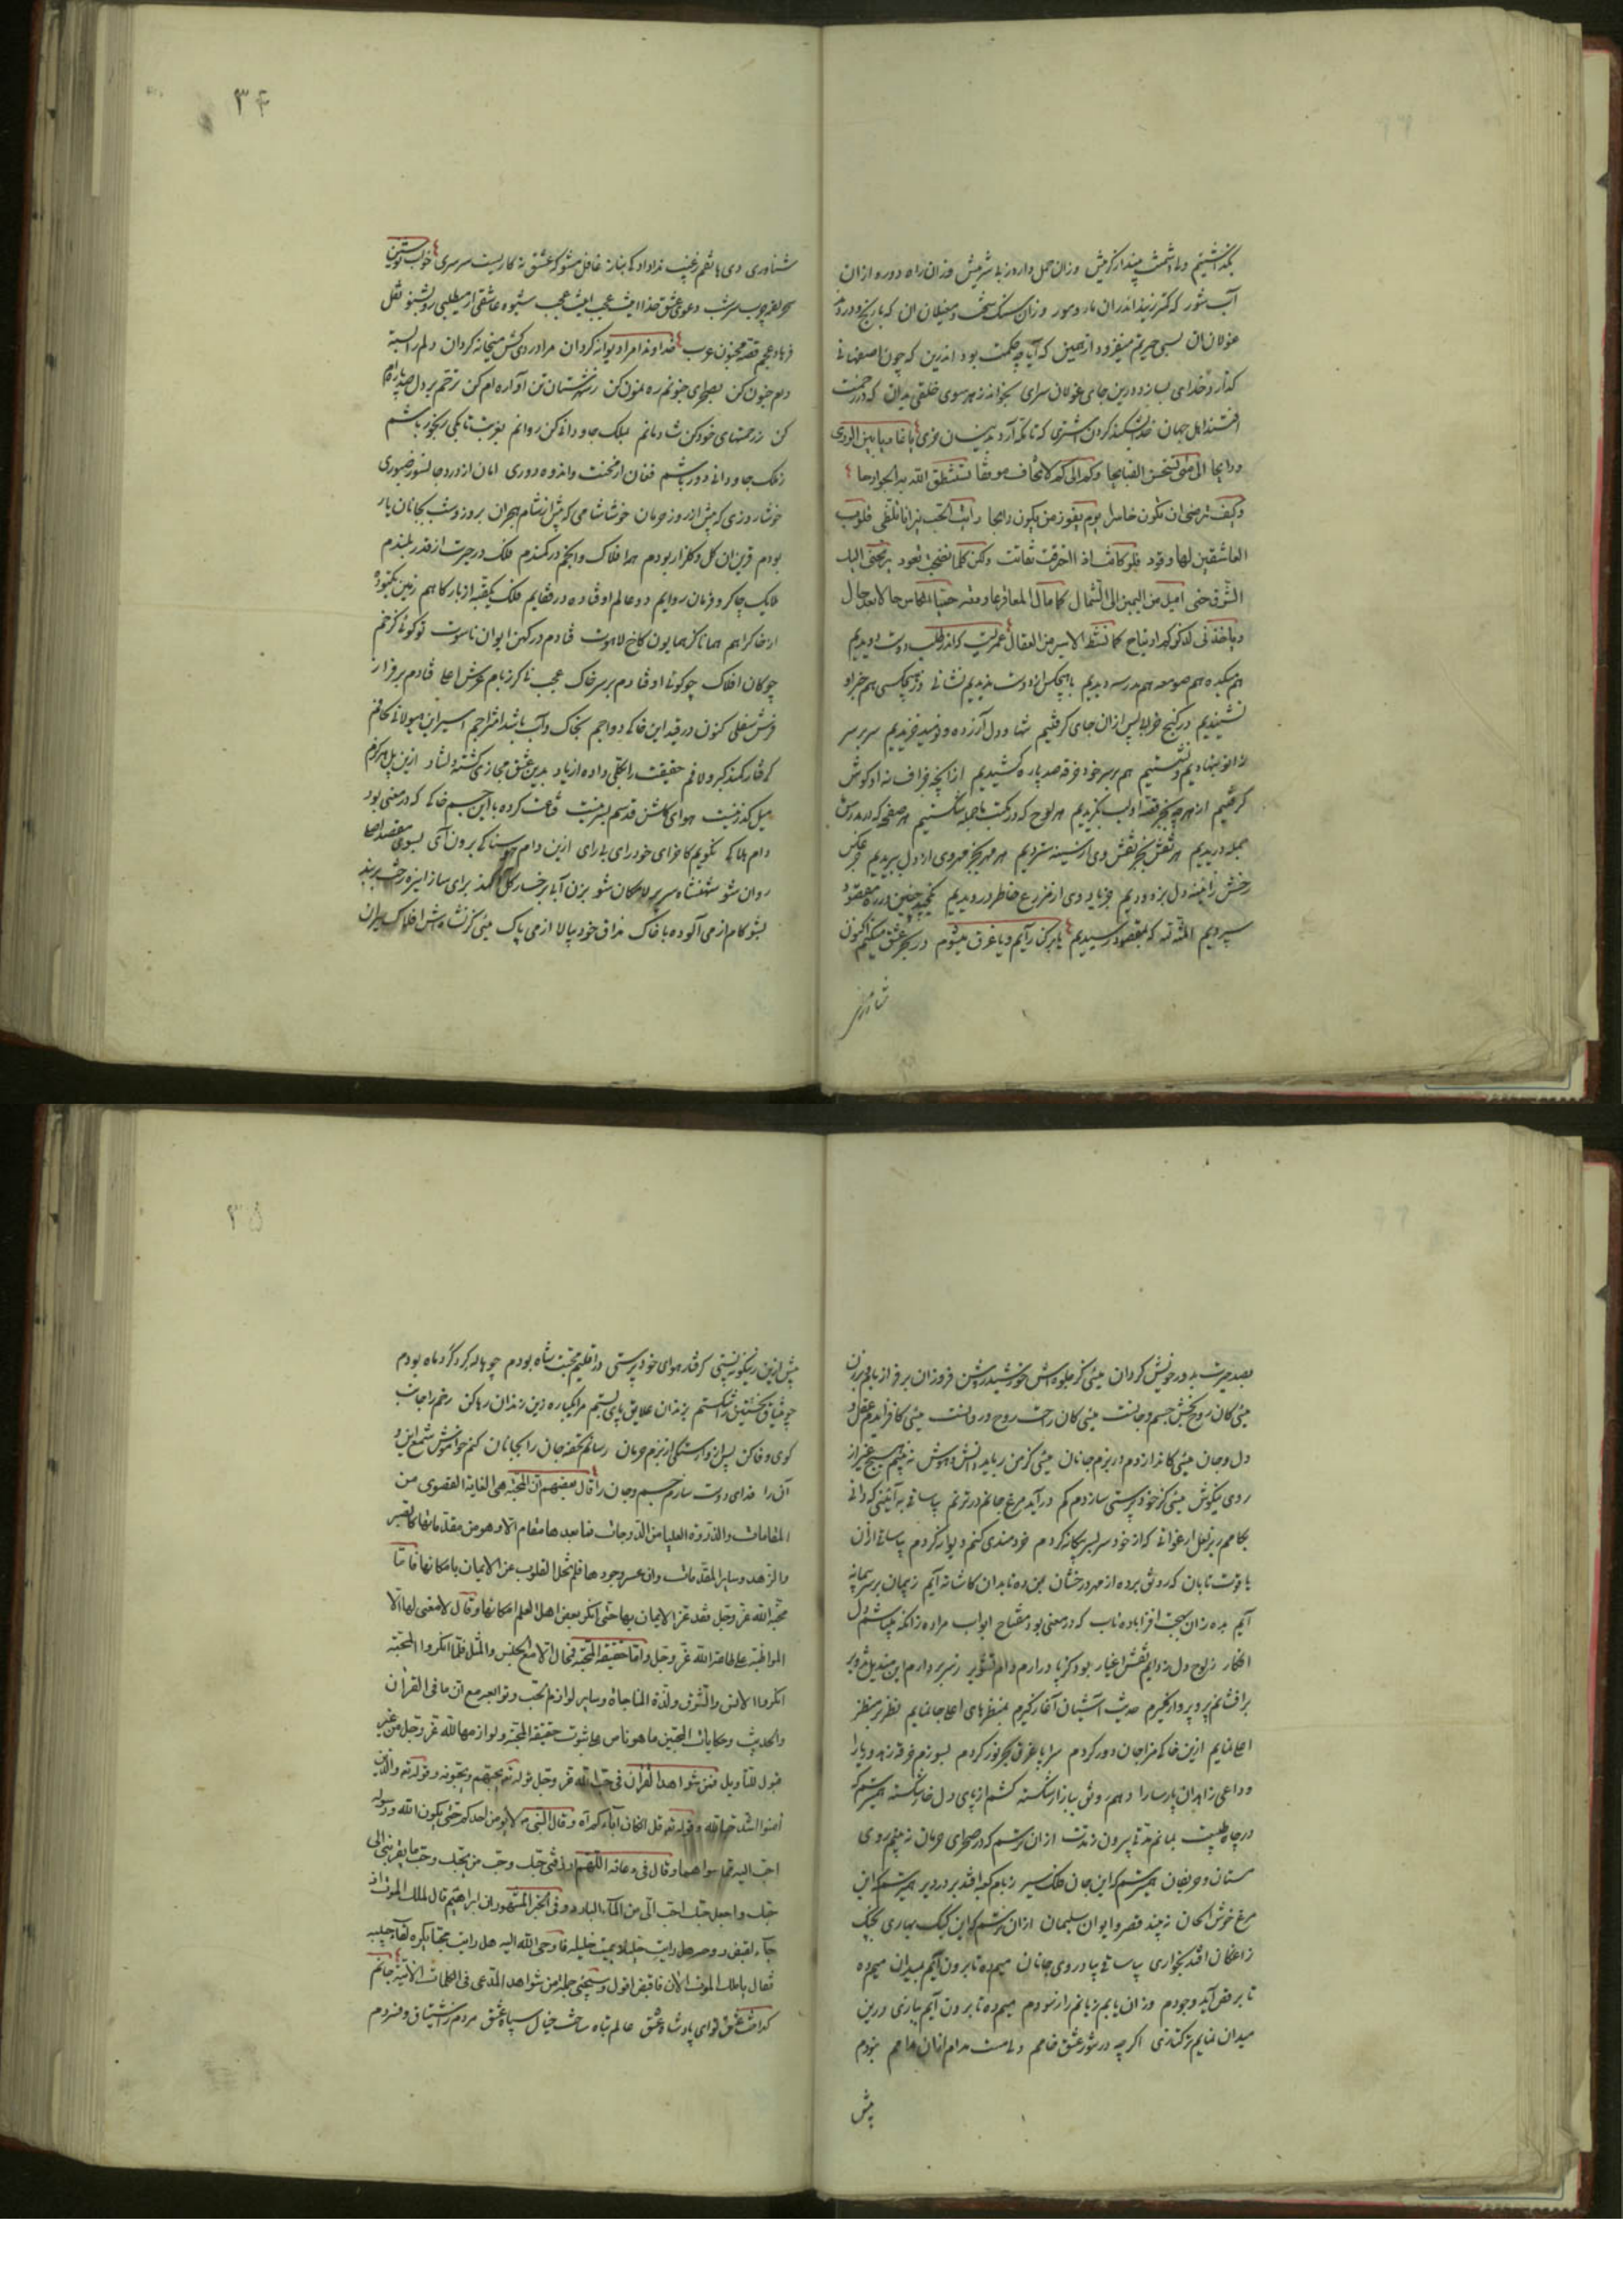 بگذاشتیم ولی وحشت پیندار کزمیش وزان حمل دارو زنا شرمیش وزان راه دور و از ان
آب شور که کتر زیذ اندران مار و مور وزان سنک سخت و مغیلان ان که باریخ و درد
غولان ان بسی حیرتم میفزود از همین که آیا چه حکمت بود اندرین که چون اصفهانی
کذارد خدای بسازد درین جای غولان سرای بخواند ز هر سوی خلقی بدان که در زحمت
افتند اهل جهان
ودایحا الی متی تستحسن القبایحا وکم الی کم لا تخاف موقفا یستنطق الله به الجوارحا
وکیف ترضی ان تکون خاسرا یوم یفوز من یکون رابحا رأیت الحب نیرانا تلظی قلوب
العاشقین لها وقود فلو کانت اذا احترقت تفانت ولکن کلما نضجت تعود برنحنی الیک
الشوق حتی امیل من الیمین الی الشمال کما مال المعاقر عاودته حمیا الکاس حالا بعد حال
ویاخذنی لذکرکم ارتیاح کما نشط الاسیر من العقال عمریست که اندر طلب دوست دویدیم
هم میکده هم صومعه هم مدرسه دیدیم با هیچکس از دوست ندیدیم نشانی وز هیچکسی هم خبر او
نشنیدیم در کنج خرابی پس از ان جای کرفتیم تنها و دل آزرده و نومید خزیدیم سر بر سر
زانو بنهادیم و نشستیم هم بر سر خود خرقه صد پاره کشیدیم از انچه بجز اف نه او کوش
کرفتیم از هرچه بجز قصه او لب بکزیدیم هر لوح که در مکتب ما جمله شکستیم هر صفحه که در مدرسه
جمله دریدیم هر نقش بجز نقش وی از سینه ستردیم هر مهر بجز مهر وی از دل ببریدیم جز عکس
رخش ز آینه دل بزدودیم جز یاد وی از مزرع خاطر درویدیم یکچند چنین در ره مقصود
سپردیم المنة لله که بمقصد رسیدیم یا بر کنار آیم و یا غرق میشوم در بحر عشق میکنم اکنون
شناوری
۳۴
شناوری دی هاتفم ز غیب ندا داد کای نیاز غافل مشو که عشق نه کاریست سرسری خواب نوشین
سحر لعنه چوب سر شب دعوی عشق خدا این عجب این عجب شیوه عاشقی ار میطلبی رو بشنو نقل
فرهاد عجم قصه مجنون عرب خداوندا مرا دیوانه کردان مرا دردی کش میخانه کردان دلم را بسته
دام جنون کن بصحرای جنونم رهنمون کن ز شهرستان تن آواره ام کن ترحم بر دل صد پاره ام
کن ز زحمتهای خود کن شادمانم بملک جاودانی کن روانم بغربت تا بکی رنجور باشم
ز ملک جاودانی دور باشم فغان از محنت و اندوه دوری امان از درد جانسوز صبوری
خوشا روزی که پیش از روز حرمان خوشا شامی که پیش از شام هجران بروز و شب بجانان یار
بودم قرین ان کل و کلزار بودم همه افلاک و انجم در کمندم فلک در حیرت از قدر بلندم
ملایک چاکر و فرمان روایم دو عالم اوفتاده در قفایم فلک یکقبه از بارکاهم زمین یکتوده
از خاک راهم همانا کز همایون کاخ لاهوت فتادم در کهن ایوان ناسوت تو کوئی کز خم
چوکان افلاک چو کوئی اوفتادم بر سر خاک عجب نی کر ز بام عرش اعلا فتادم بر فراز
فرش سفلی کنون در قید این خاکی دواجم بخاک و آب باشد امتزاجم اسیر این هیولانی کافم
کرفتار کمند کبر و لافم حقیقت را بکلی داده از یاد بدین عشق مجازی کشته دلشاد ازین پل هرکزم
میل کذر نیست هوای کلشن قدسم بسر نیست قناعت کرده با این جسم خاکی که در معنی بود
دام هلاکی نکویم کاخرای خود رای بی رای ازین دام هوسناکی برون آی بسوی مقصد اعلا
روان شو شهنشاه سریر لامکان شو بزن آبی بر خسار کل الود برای ساز از اینره رخت بربند
بشو کام از می آلوده با خاک مذاق خود بیالا از می پاک میئی کز نشاءش افلاک حیران
بصد حیرت بدور خویش کردان میئی کز جلوه اش خورشید روشن فروزان بر فراز بام و برزن
میئی کان روح بخش جسم و جانست میئی کان راحت روح و روانست میئی کافزایدم عقل و
دل و جان میئی کاندازدم در بزم جانان میئی کز من رباید دانش و هوش نه بینم هیچ غیر از
روی نیکوش میئی کز خود پرستی سازدم کم درآید مرغ جانم در ترنم بیا ساقی به آئینی که دانی
بجامم ریز لعل ارغوانی که از خود سر بسر بیکانه کردم خردمندی کنم دیوانه کردم بیا ساقی از ان
یاقوت تابان که رونق برده از مهر درخشان بمن ده تا بدان کاشانه آیم ز پیمان بر سر پیمانه
آیم بده زان بهجت افزا باده ناب که در معنی بود مفتاح ابواب مراده زانکه بیتابشم دل
افکار ز لوح دل زدایم نقش اغیار بود کز پا درآرم دام تزویر ز سر بردارم این مندیل تزویر
برافشانم پر و پرواز کیرم حدیث آشیان آغاز کیرم بمنظرهای اعلا جا نمایم نظر بر منظر
اعلا نمایم ازین خاکی مزاجان دور کردم سراپا غرق بحر نور کردم بسوزم خرقه زهد و ریا را
وداعی زاهدان پارسا را دهم رونق ببازار شکسته کشم از پای دل خار شکسته همی ترسم که
در چاه طبیعت بمانم مدتی بیرون ز مدت از ان ترسم که در صحرای حرمان نه بینم روی
مستان و حریفان همی ترسم که این جان ملک سیر ز بام کعبه افتد بر در دیر همی ترسم که این
مرغ خوش الحان نه بیند قصر و ایوان سلیمان از ان ترسم که این کبک بهاری بچنک
زاغکان افتد بخواری بیا ساقی بیا در روی جانان میم ده تا برون آیم بمیدان میم ده
تا برقص آید وجودم وزان یابم زیانم را ز سودم میم ده تا برون آیم ببازی درین
میدان نمایم ترکتازی اکر چه در شور عشق خامم ولی مست مدام از ان مدامم نبودم
پیش
۳۵
پیش ازین زینکونه پستی کرفتار هوای خود پرستی در اقلیم محبت شاه بودم چو هاله کرد کرد ماه بودم
چو میثاق نخستین را شکستم بزندان علایق پای بستم مرا یکباره زین زندان رها کن رخم را جانب
کوی وفا کن پس از وارستکی از بزم حرمان رسانم تحفه جان را بجانان کنم خواموش شمع این و
آن را فدای دوست سازم جسم و جان را قال بعضهم ان المحبة هی الغایة القصوی من
المقامات والذروة العلیا من الدرجات فما بعدها مقام الا و هو من مقدماتها کالصبر
والزهد وسایر المقدمات وان عسر وجودها فلم تخل القلوب عن الایمان بامکانها فاما
محبة الله عز وجل فقد عز الایمان بها حتی انکر بعض اهل العلم امکانها وقال لا معنی لها الا
المواظبة علی طاعة الله عز وجل واما حقیقة المحبة فمحال الا مع الجنس والمثل فلما انکروا المحبة
انکروا الانس والشوق ولذة المناجاة وسایر لوازم الحب وتوابعه مع ان ما فی القرآن
والحدیث وحکایات المحبین ما هو ناص علی ثبوت حقیقة المحبة ولوازمها لله عز وجل من غیر
قبول للتأویل فمن شواهد القرآن فی حب الله عز وجل قوله تع یحبهم ویحبونه وقوله تع والذین
آمنوا اشد حبا لله وقوله تع قل ان کان آباؤکم آه وقال النبی ص لا یؤمن احدکم حتی یکون الله ورسوله
احب الیه مما سواهما وقال فی دعائه اللهم ارزقنی حبک وحب من یحبک وحب ما یقربنی الی
حبک واجعل حبک احب الی من الماء البارد وفی الخبر المشهور ان ابراهیم قال لملک الموت اذ
جاء لقبض روحه هل رایت خلیلا یمیت خلیله فاوحی الله الیه هل رایت محبا یکره لقاء حبیبه
فقال یا ملک الموت الان فاقبض اقول وسیجئی جملة من شواهد المدعی فی الکلمات الاتیة جانم
کداخت عشق لوای پادشاه عشق عالم تباه ساخت خیال سپاه عشق مردم ز اشتیاق و نبردم